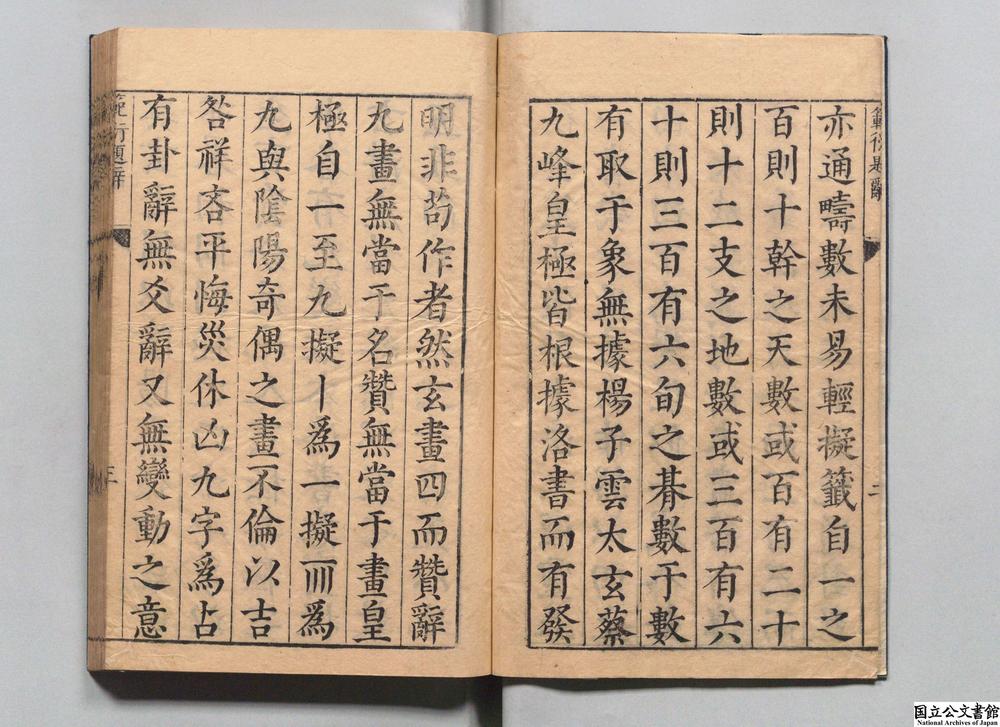 亦通疇數未易輕擬籤自一之
百則十幹之天數或百有二十
則十二支之地數或三百有六
十則三百有六旬之朞數于數
有取于象無據楊子雲太玄蔡
九峰皇極皆根據洛書而有發
二
明非苟作者然玄畫四而贊辭
九畫無當于名贊無當于畫皇
極自一至九擬丨爲一擬〣爲
九與陰陽奇偶之畫不倫以吉
咎祥吝平悔災休凶九字爲占
有卦辭無爻辭又無變動之意
範衍題辭
三
国立公文書館
National Archives of Japan